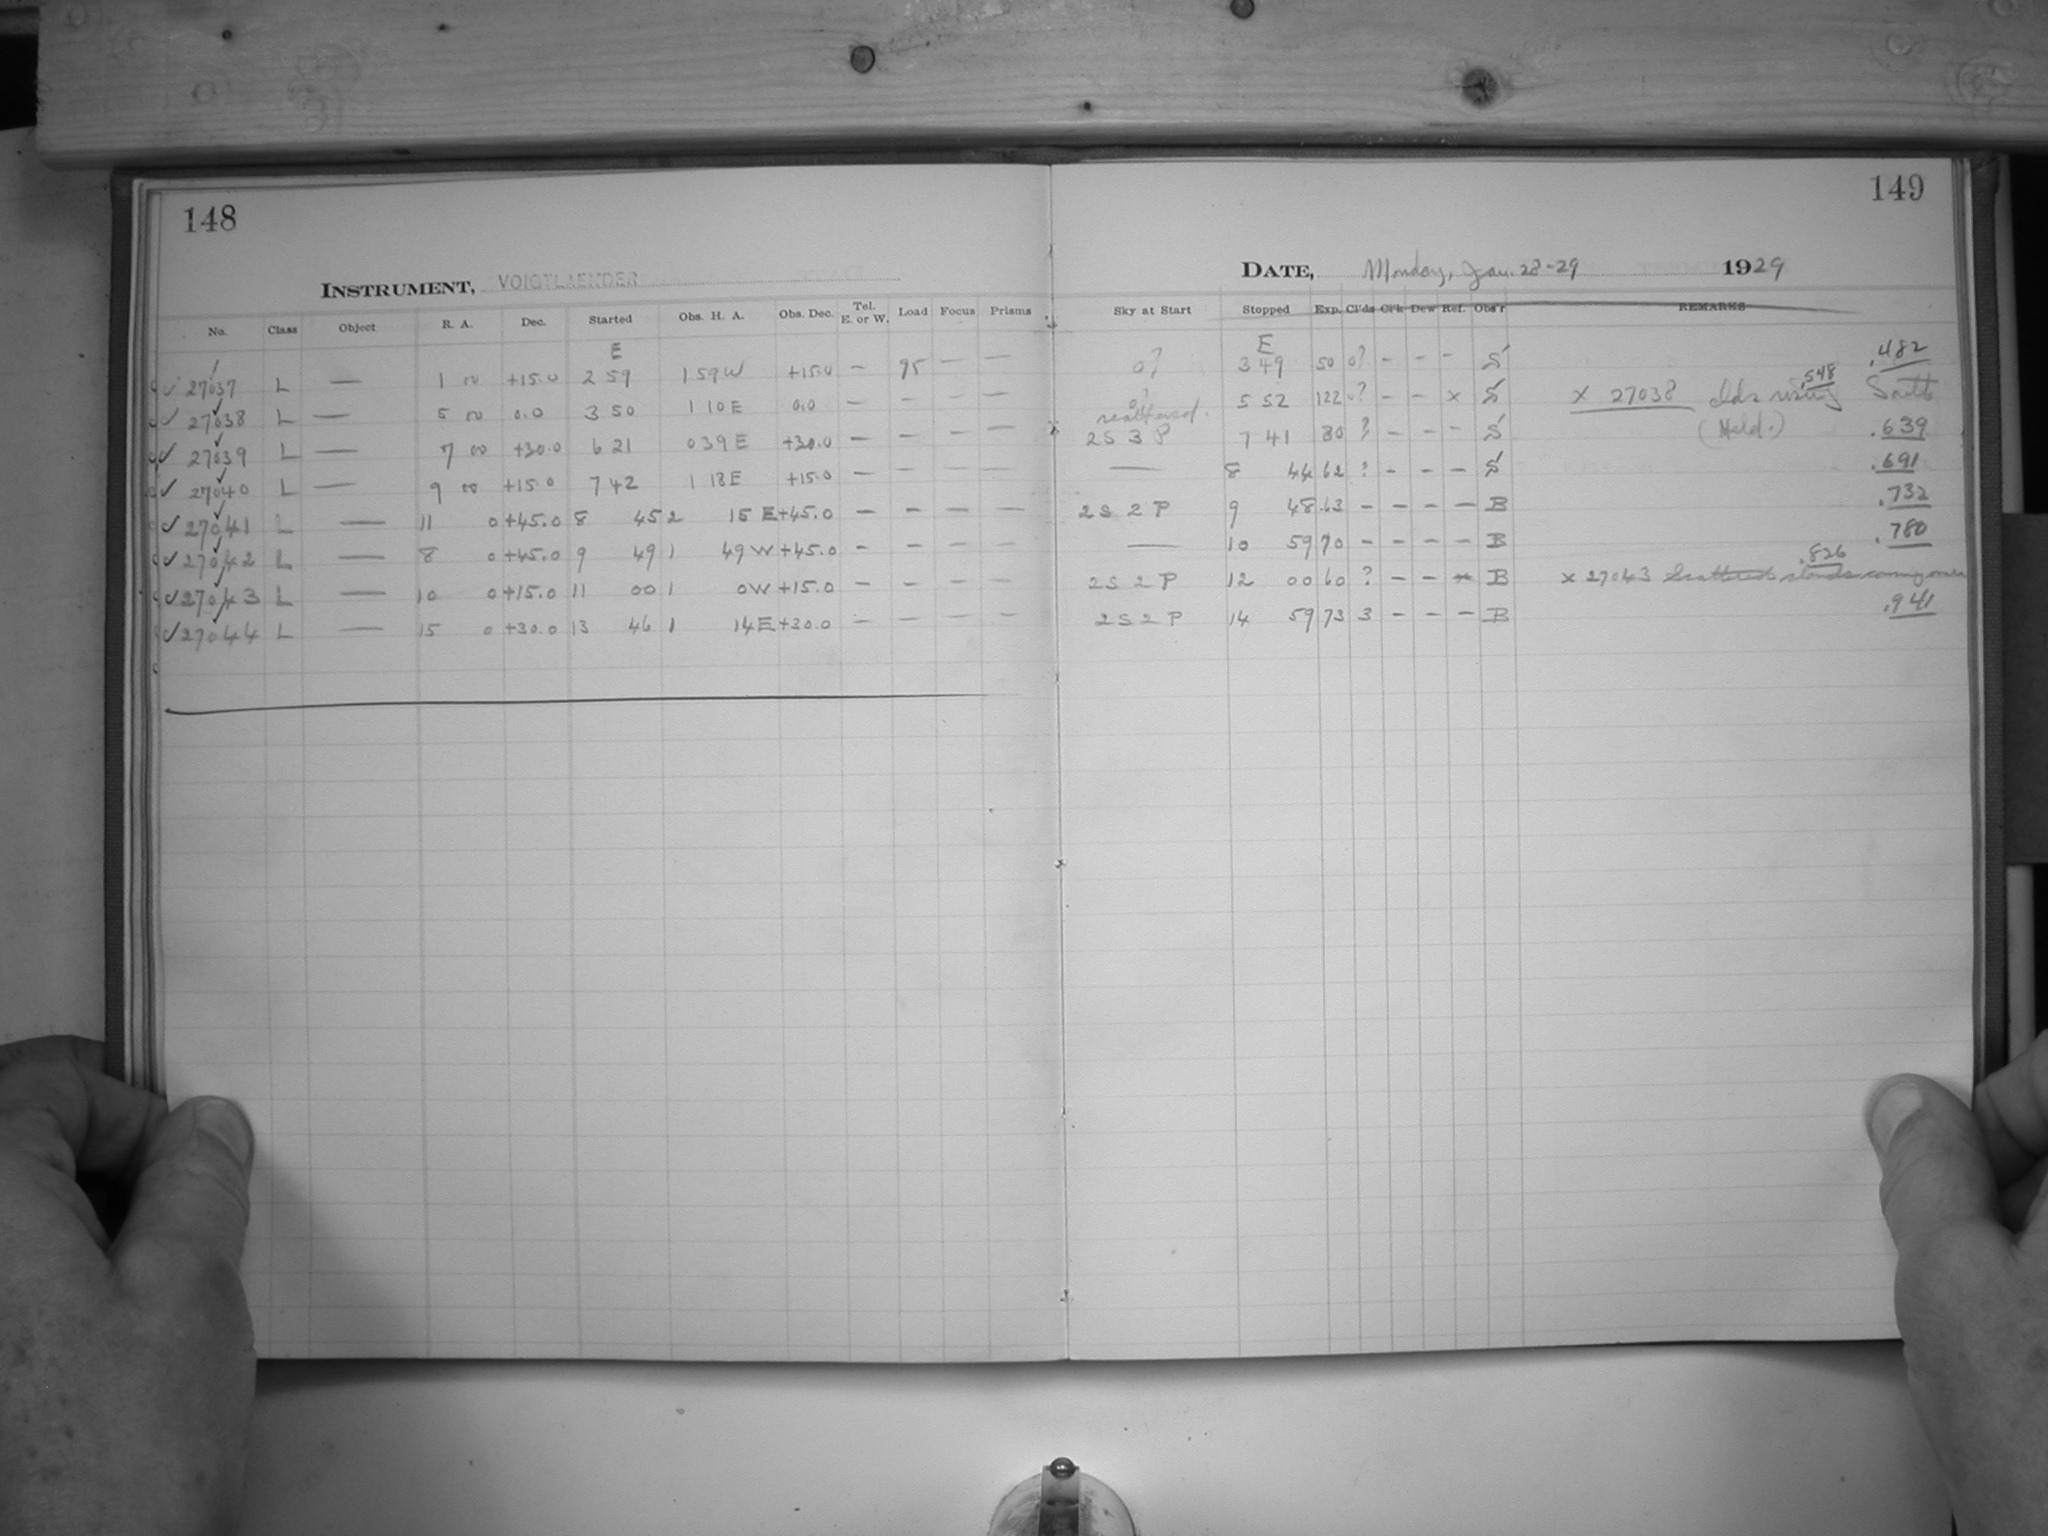 148
149
INSTRUMENT, VOIGTLAENDER
DATE, Monday, Jan. 28-29 1929
No. Class Object R. A. Dec. Started Obs. H. A. Obs. Dec. Tel. E. or W. Load Focus Prisms Sky at Start Stopped Exp. Cl'ds Cl'k Dew Ref. Obs'r REMARKS
E E
✓ 27037 L — 1 00 +15.0 2 59 1 59 W +15.0 — 95 — — 0? 3 49 50 0? - - - S .482
✓ 27038 L — 5 00 0.0 3 50 1 10 E 0.0 — — — — 0? 5 52 122 0? - - x S x 27038 clds rising South .548
✓ 27039 L — 7 00 +30.0 6 21 0 39 E +30.0 — — — — 2 S 3 P 7 41 80 ? - - - S (Held.) .639
✓ 27040 L — 9 00 +15.0 7 42 1 18 E +15.0 — — — — — 8 44 62 ? - - - S .691
✓ 27041 L — 11 0 +45.0 8 45 2 15 E +45.0 — — — — 2 S 2 P 9 48 63 - - - - B .732
✓ 27042 L — 8 0 +45.0 9 49 1 49 W +45.0 — — — — — 10 59 70 - - - - B .780
✓ 27043 L — 10 0 +15.0 11 00 1 0 W +15.0 — — — — 2 S 2 P 12 00 60 ? - - x B x 27043 Scattered clouds coming over .826
✓ 27044 L — 15 0 +30.0 13 46 1 14 E +30.0 — — — — 2 S 2 P 14 59 73 3 - - - B .941